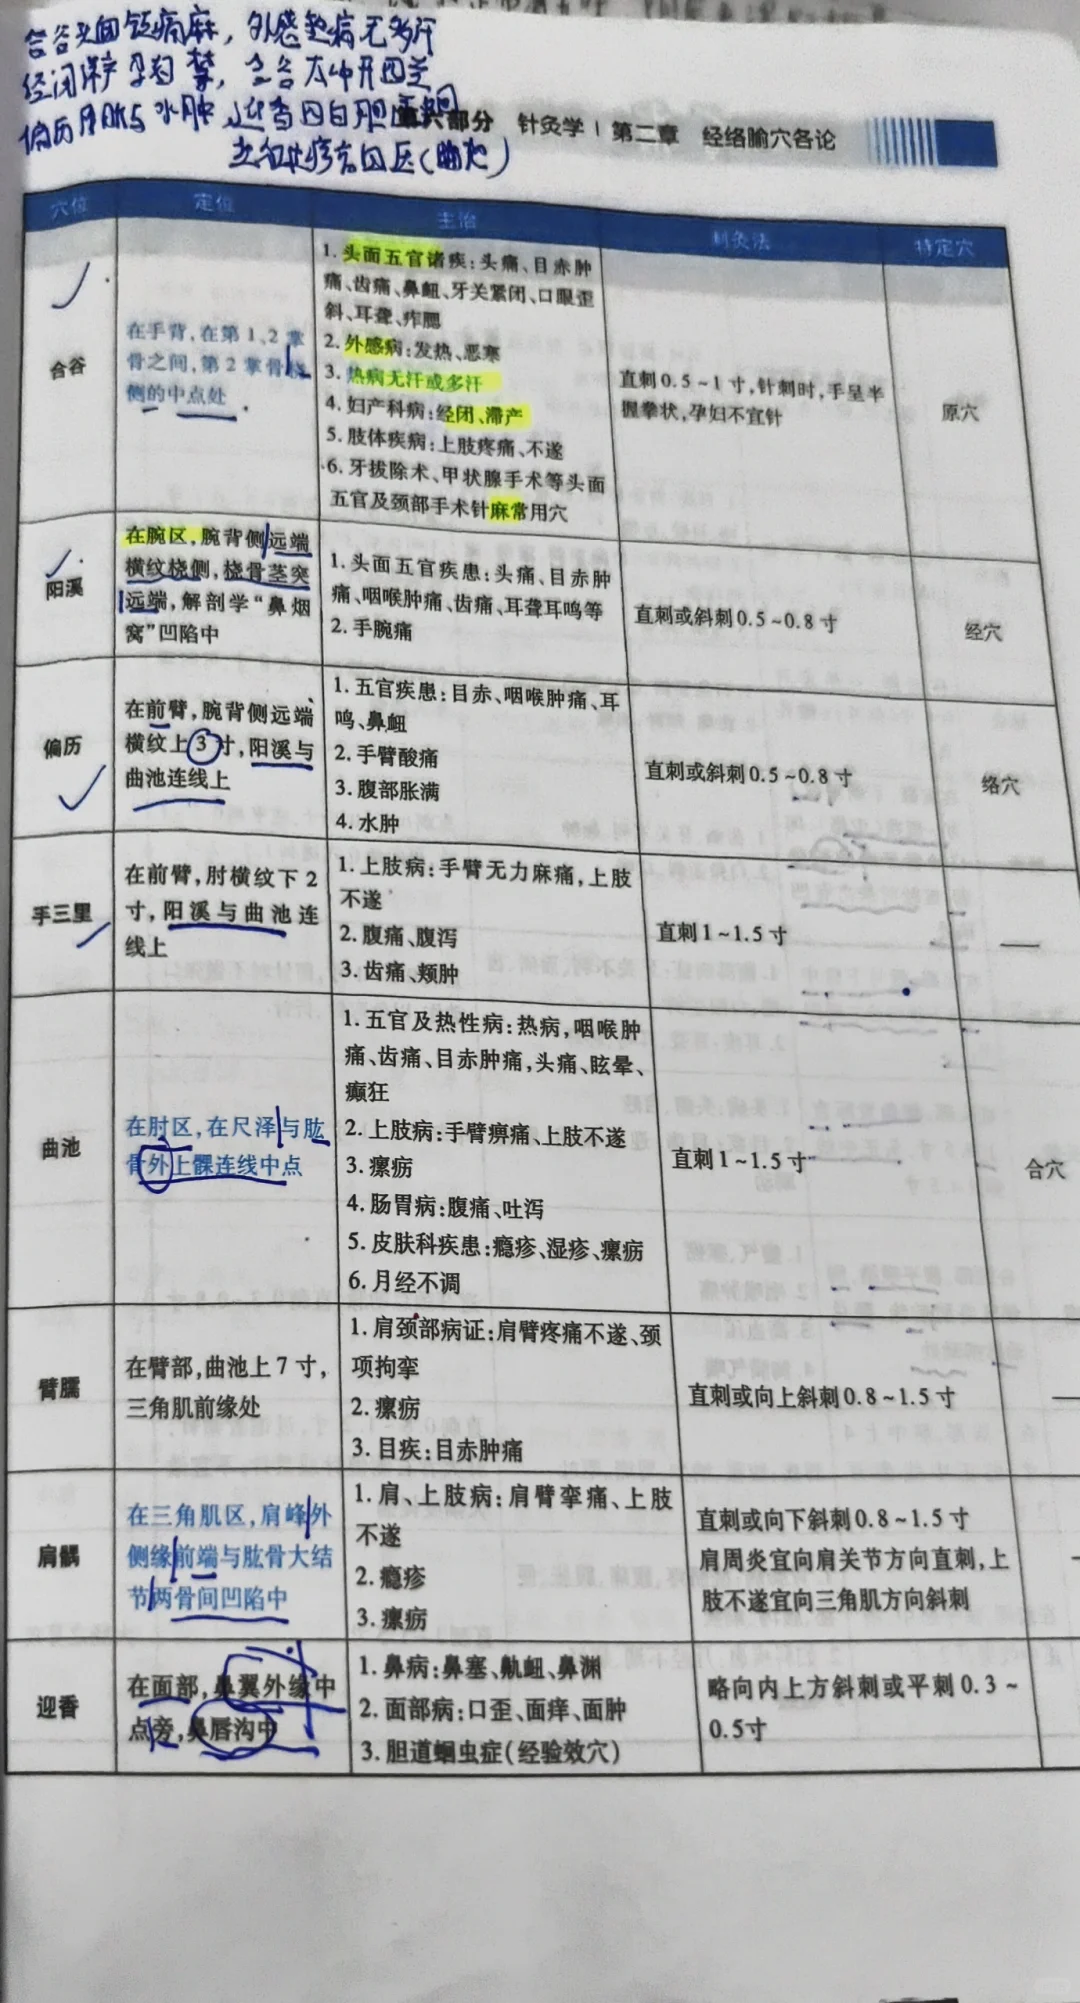 合谷头面诸病麻，外感热病无多汗
经闭滞产孕妇禁，合谷太冲开四关
偏历 与水肿 迎香四白胆道蛔
部分 针灸学 | 第二章 经络腧穴各论
穴位 定位 主治 刺灸法 特定穴
合谷
在手背，在第1、2掌
骨之间，第2掌骨桡
侧的中点处
1. 头面五官诸疾：头痛、目赤肿
痛、齿痛、鼻衄、牙关紧闭、口眼歪
斜、耳聋、痄腮
2. 外感病：发热、恶寒
3. 热病无汗或多汗
4. 妇产科病：经闭、滞产
5. 肢体疾病：上肢疼痛、不遂
6. 牙拔除术、甲状腺手术等头面
五官及颈部手术针麻常用穴
直刺0.5~1寸，针刺时，手呈半
握拳状，孕妇不宜针
原穴
阳溪
在腕区，腕背侧远端
横纹桡侧，桡骨茎突
远端，解剖学“鼻烟
窝”凹陷中
1. 头面五官疾患：头痛、目赤肿
痛、咽喉肿痛、齿痛、耳聋耳鸣等
2. 手腕痛
直刺或斜刺0.5~0.8寸
经穴
偏历
在前臂，腕背侧远端
横纹上3寸，阳溪与
曲池连线上
1. 五官疾患：目赤、咽喉肿痛、耳
鸣、鼻衄
2. 手臂酸痛
3. 腹部胀满
4. 水肿
直刺或斜刺0.5~0.8寸
络穴
手三里
在前臂，肘横纹下2
寸，阳溪与曲池连
线上
1. 上肢病：手臂无力麻痛，上肢
不遂
2. 腹痛、腹泻
3. 齿痛、颊肿
直刺1~1.5寸
—
曲池
在肘区，在尺泽与肱
骨外上髁连线中点
1. 五官及热性病：热病，咽喉肿
痛、齿痛、目赤肿痛，头痛、眩晕、
癫狂
2. 上肢病：手臂痹痛、上肢不遂
3. 瘰疬
4. 肠胃病：腹痛、吐泻
5. 皮肤科疾患：瘾疹、湿疹、瘰疬
6. 月经不调
直刺1~1.5寸
合穴
臂臑
在臂部，曲池上7寸，
三角肌前缘处
1. 肩颈部病证：肩臂疼痛不遂、颈
项拘挛
2. 瘰疬
3. 目疾：目赤肿痛
直刺或向上斜刺0.8~1.5寸
—
肩髃
在三角肌区，肩峰外
侧缘前端与肱骨大结
节两骨间凹陷中
1. 肩、上肢病：肩臂挛痛、上肢
不遂
2. 瘾疹
3. 瘰疬
直刺或向下斜刺0.8~1.5寸
肩周炎宜向肩关节方向直刺，上
肢不遂宜向三角肌方向斜刺
迎香
在面部，鼻翼外缘中
点旁，鼻唇沟中
1. 鼻病：鼻塞、鼽衄、鼻渊
2. 面部病：口歪、面痒、面肿
3. 胆道蛔虫症（经验效穴）
略向内上方斜刺或平刺0.3~
0.5寸